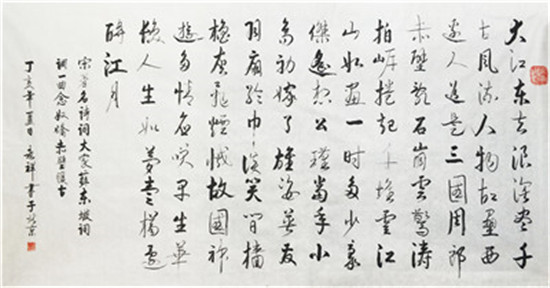 大江东去浪淘尽千
古风流人物故垒西
边人道是三國周郎
赤壁乱石崩雲驚濤
拍岸捲起千堆雪江
山如画一时多少豪
傑遥想公瑾当年小
乔初嫁了雄姿英发
羽扇纶巾谈笑间樯
橹灰飛煙滅故國神
遊多情应笑早生華
髮人生如夢壹樽还
酹江月
宋著名诗词大家蘇东坡词
调一曲念奴娇赤壁懷古
丁亥年夏日 永祥書于京